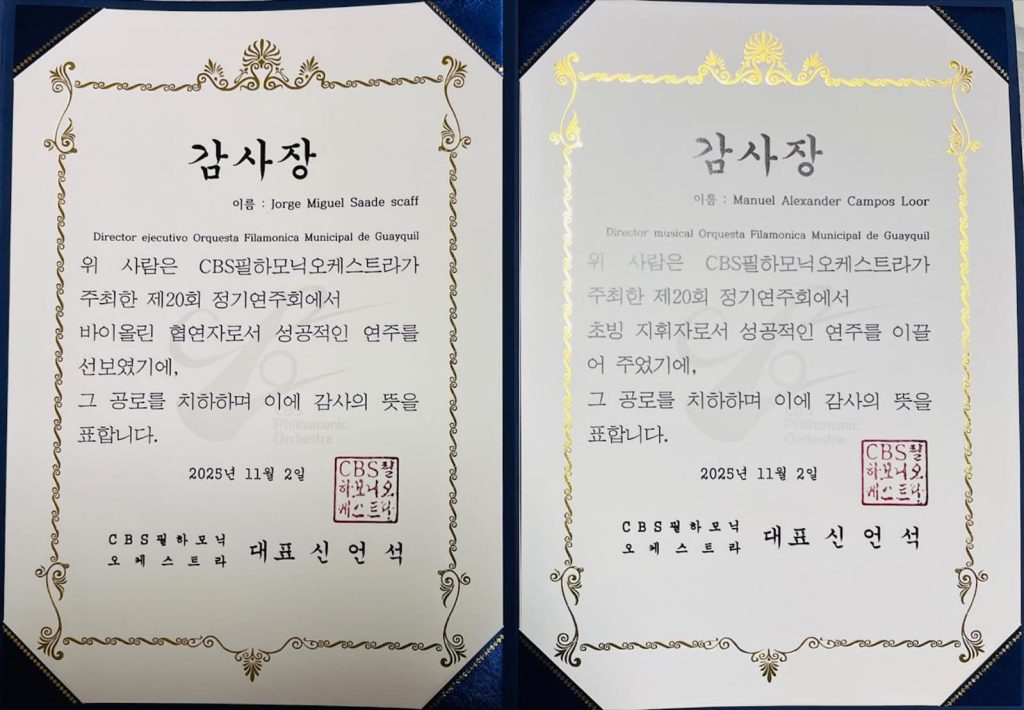 감사장
이름 : Jorge Miguel Saade scaff
Director ejecutivo Orquesta Filamonica Municipal de Guayquil
위 사람은 CBS필하모닉오케스트라가
주최한 제20회 정기연주회에서
바이올린 협연자로서 성공적인 연주를
선보였기에,
그 공로를 치하하며 이에 감사의 뜻을
표합니다.
Philhamonic
Orchestra
2025년 11월 2일
CBS필
하모닉오
케스트라
CBS필하모닉
오케스트라
대표 신언석
감사장
이름 : Manuel Alexander Campos Loor
Director musical Orquesta Filamonica Municipal de Guayquil
위 사람은 CBS필하모닉오케스트라가
주최한 제20회 정기연주회에서
초빙 지휘자로서 성공적인 연주를 이끌
어 주었기에,
그 공로를 치하하며 이에 감사의 뜻을
표합니다.
Philhamonic
Orchestra
2025년 11월 2일
CBS필
하모닉오
케스트라
CBS필하모닉
오케스트라
대표 신언석